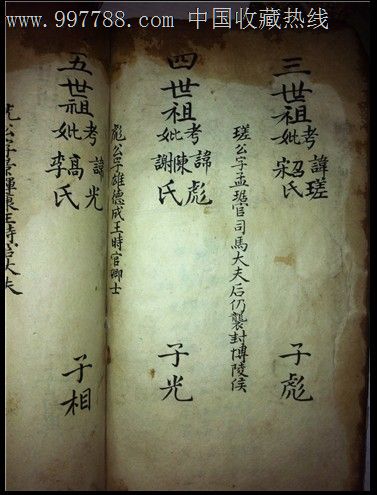 www.997788.com 中国收藏热线
三世祖
考諱瑳
妣宋氏
子彪
瑳公字孟琚官司馬大夫后仍襲封博陵侯
四世祖
考諱彪
妣陳謝氏
子光
彪公字雄德成王時官卿士
五世祖
考諱光
妣高李氏
子相
公字康王時官大夫